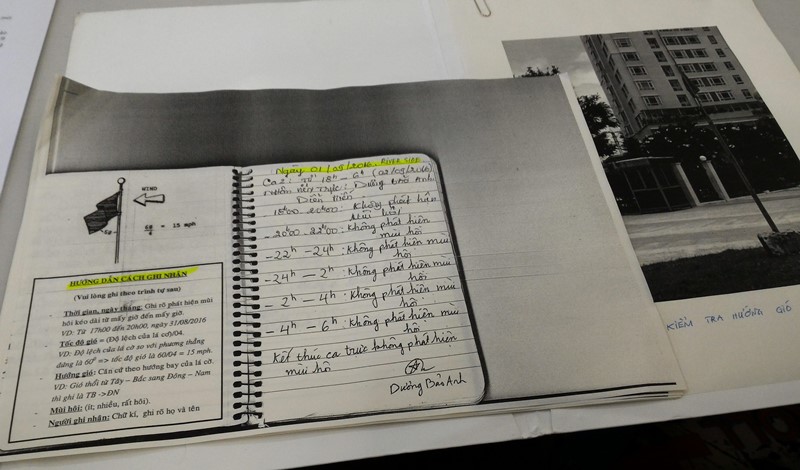 WIND
60/4 = 15 mph
HƯỚNG DẪN CÁCH GHI NHẬN
(Vui lòng ghi theo trình tự sau)
- Thời gian, ngày tháng: Ghi rõ phát hiện mùi
hôi kéo dài từ mấy giờ đến mấy giờ.
VD: Từ 17h00 đến 20h00, ngày 31/08/2016
Tốc độ gió = (Độ lệch của lá cờ)/04.
VD: Độ lệch của lá cờ so với phương thẳng
đứng là 60⁰ => tốc độ gió là 60/04 = 15 mph.
Hướng gió: Căn cứ theo hướng bay của lá cờ.
VD: Gió thổi từ Tây – Bắc sang Đông – Nam
thì ghi là TB ->ĐN
Mùi hôi: (ít; nhiều, rất hôi).
Người ghi nhận: Chữ kí, ghi rõ họ và tên
Ngày 01/09/2016 - RIVER SIDE
Ca 2: Từ 18h - 6h (02/09/2016)
Nhân viên trực: Dương Bảo Anh
18h00 - 20h00: Không phát hiện
mùi hôi
- 20h00 - 22h00: Không phát hiện
mùi hôi
- 22h - 24h: Không phát hiện mùi
hôi
- 24h - 2h: Không phát hiện mùi
hôi
- 2h - 4h: Không phát hiện mùi
hôi
- 4h - 6h: Không phát hiện mùi
hôi
Kết thúc ca trực không phát hiện
mùi hôi
Dương Bảo Anh
KIỂM TRA HƯỚNG GIÓ